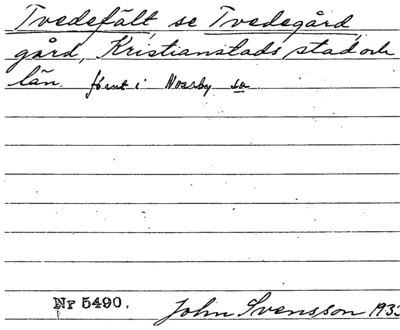 Tvedefält se Tvedegård,
gård, Kristianstads stad och
län. förut i Nosaby sn
Nr 5490. John Svensson 1933